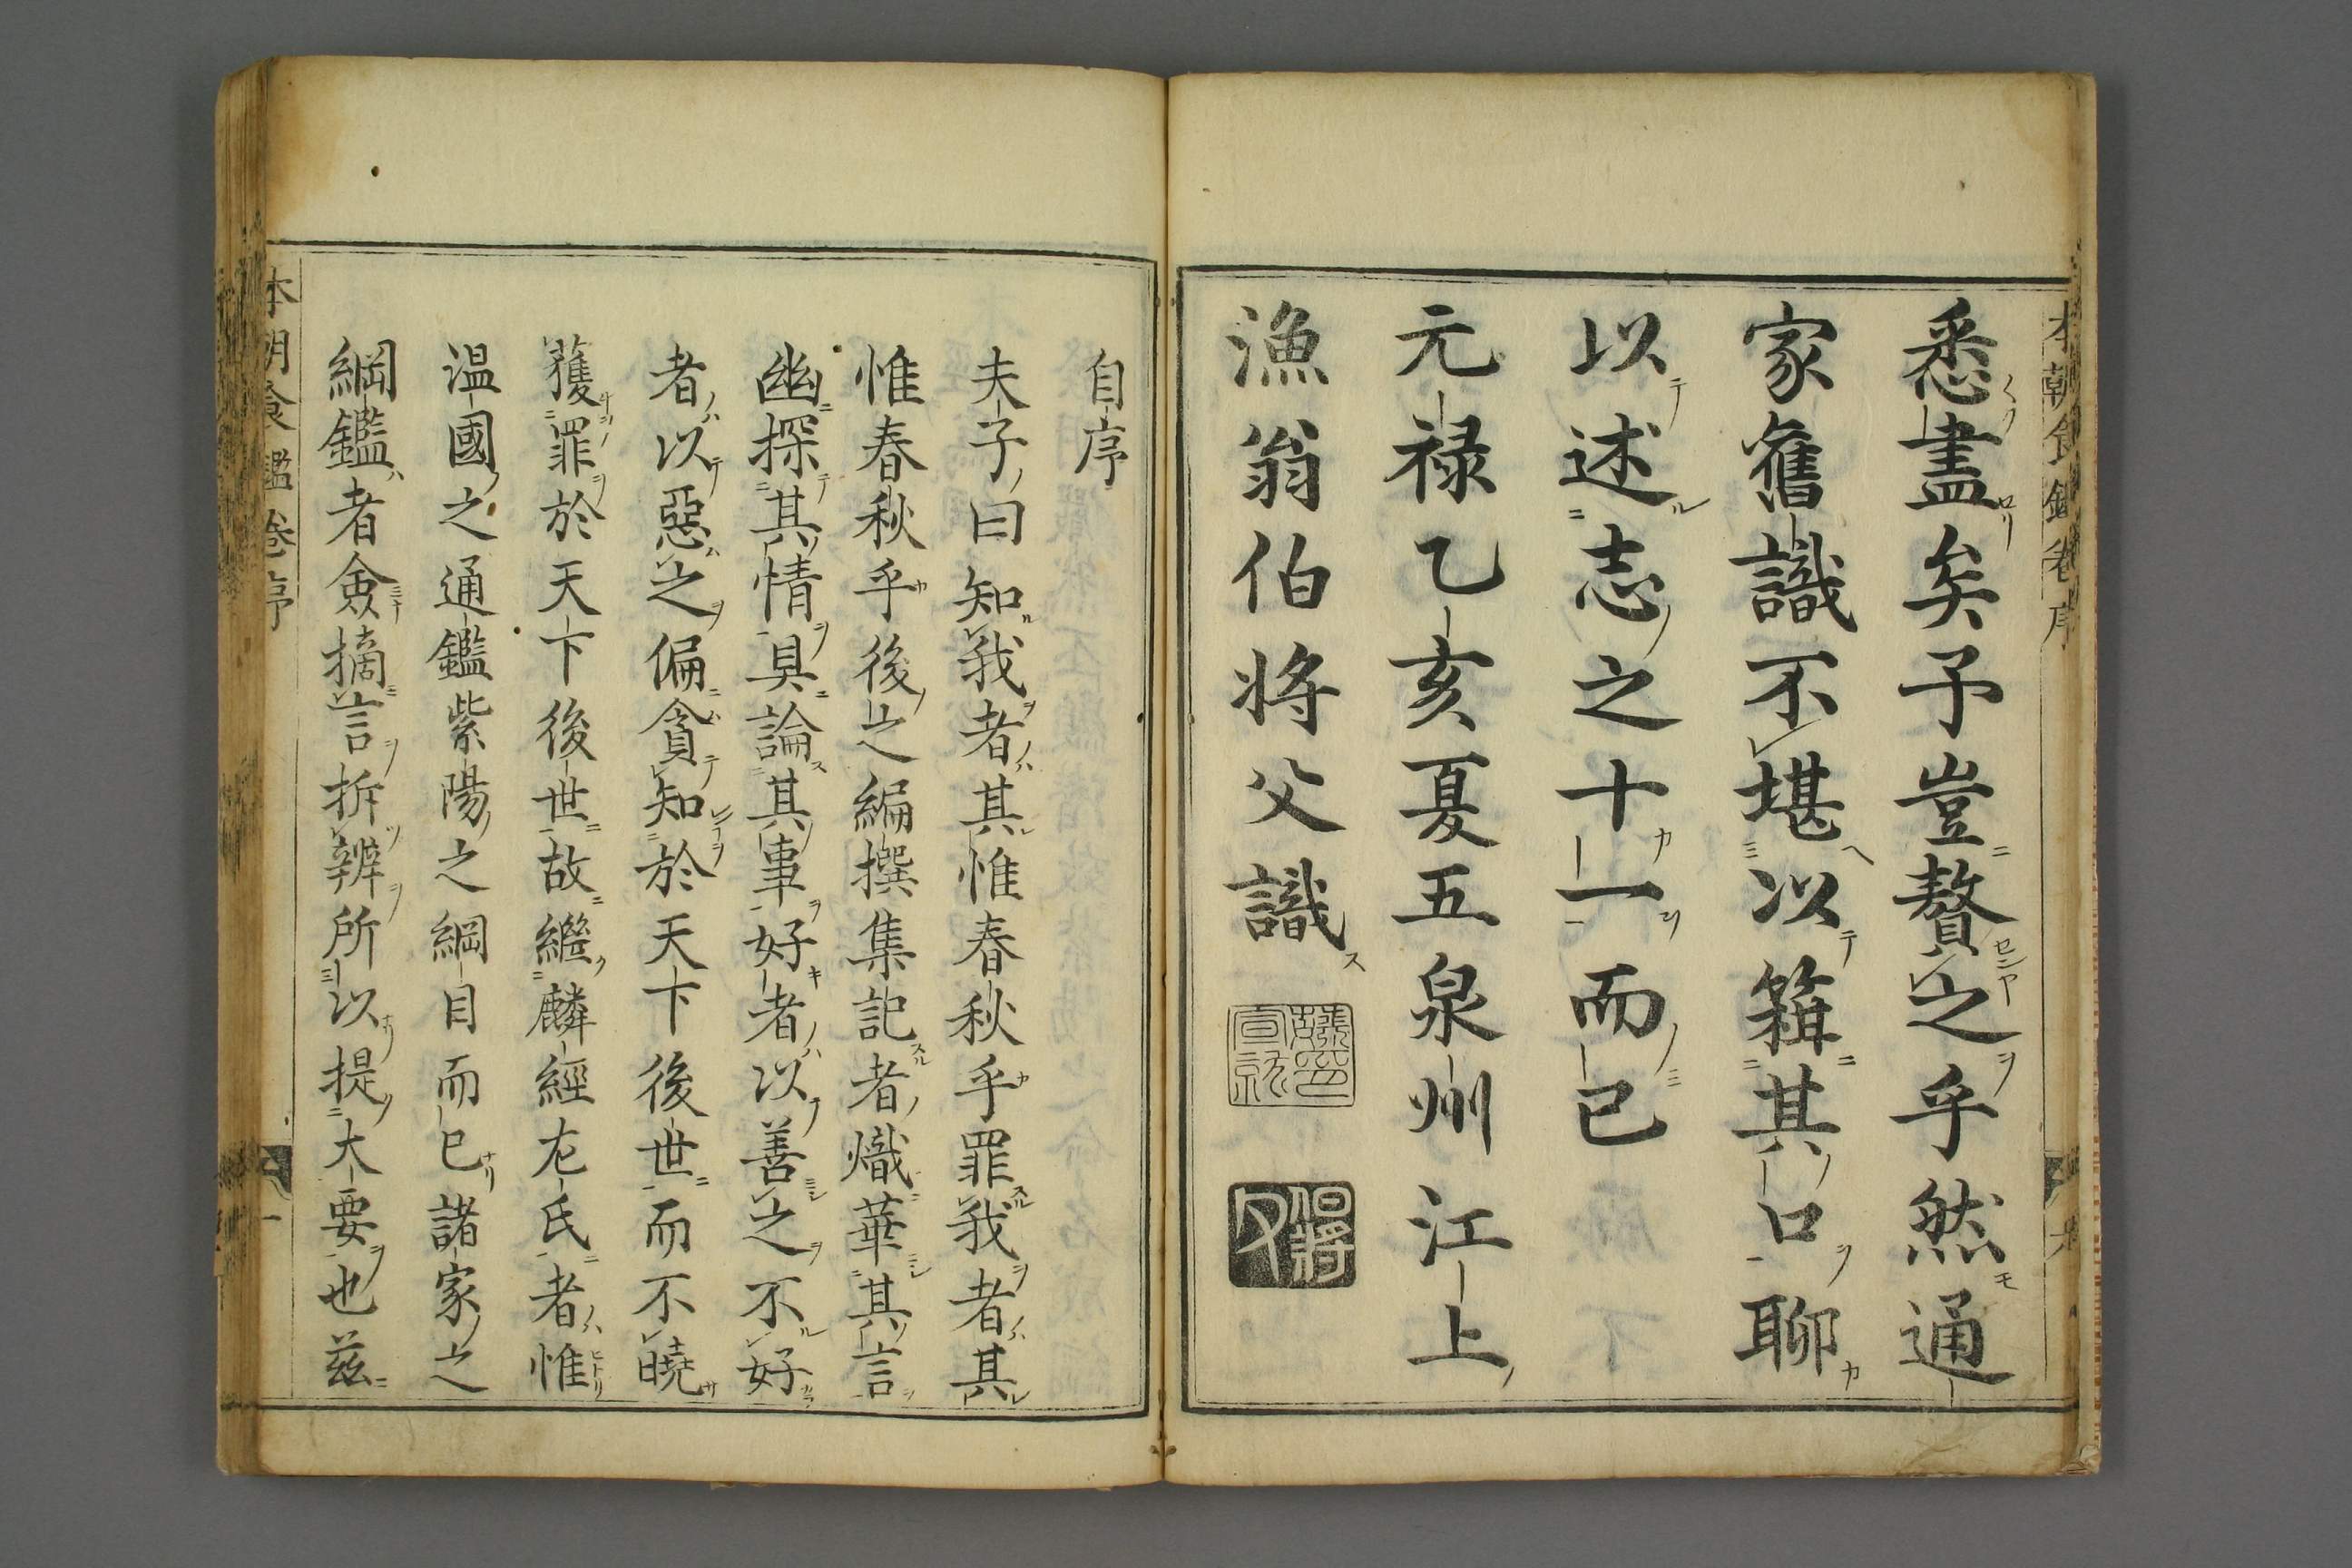 本朝食鑑卷序
悉盡矣予豈贅之乎然通
家舊識不堪以箝其口聊
以述志之十一而已
元禄乙亥夏五泉州江上
漁翁伯将父識
伯將父
自序
夫子曰知我者其惟春秋乎罪我者其
惟春秋乎後之編撰集記者熾華其言
幽探其情具論其事好者以善之不好
者以惡之偏貪知於天下後世而不曉
獲罪於天下後世故繼麟經左氏者惟
温國之通鑑紫陽之綱目而已諸家之
綱鑑者僉摘言拆辨所以提大要也茲
本朝食鑑卷序
一